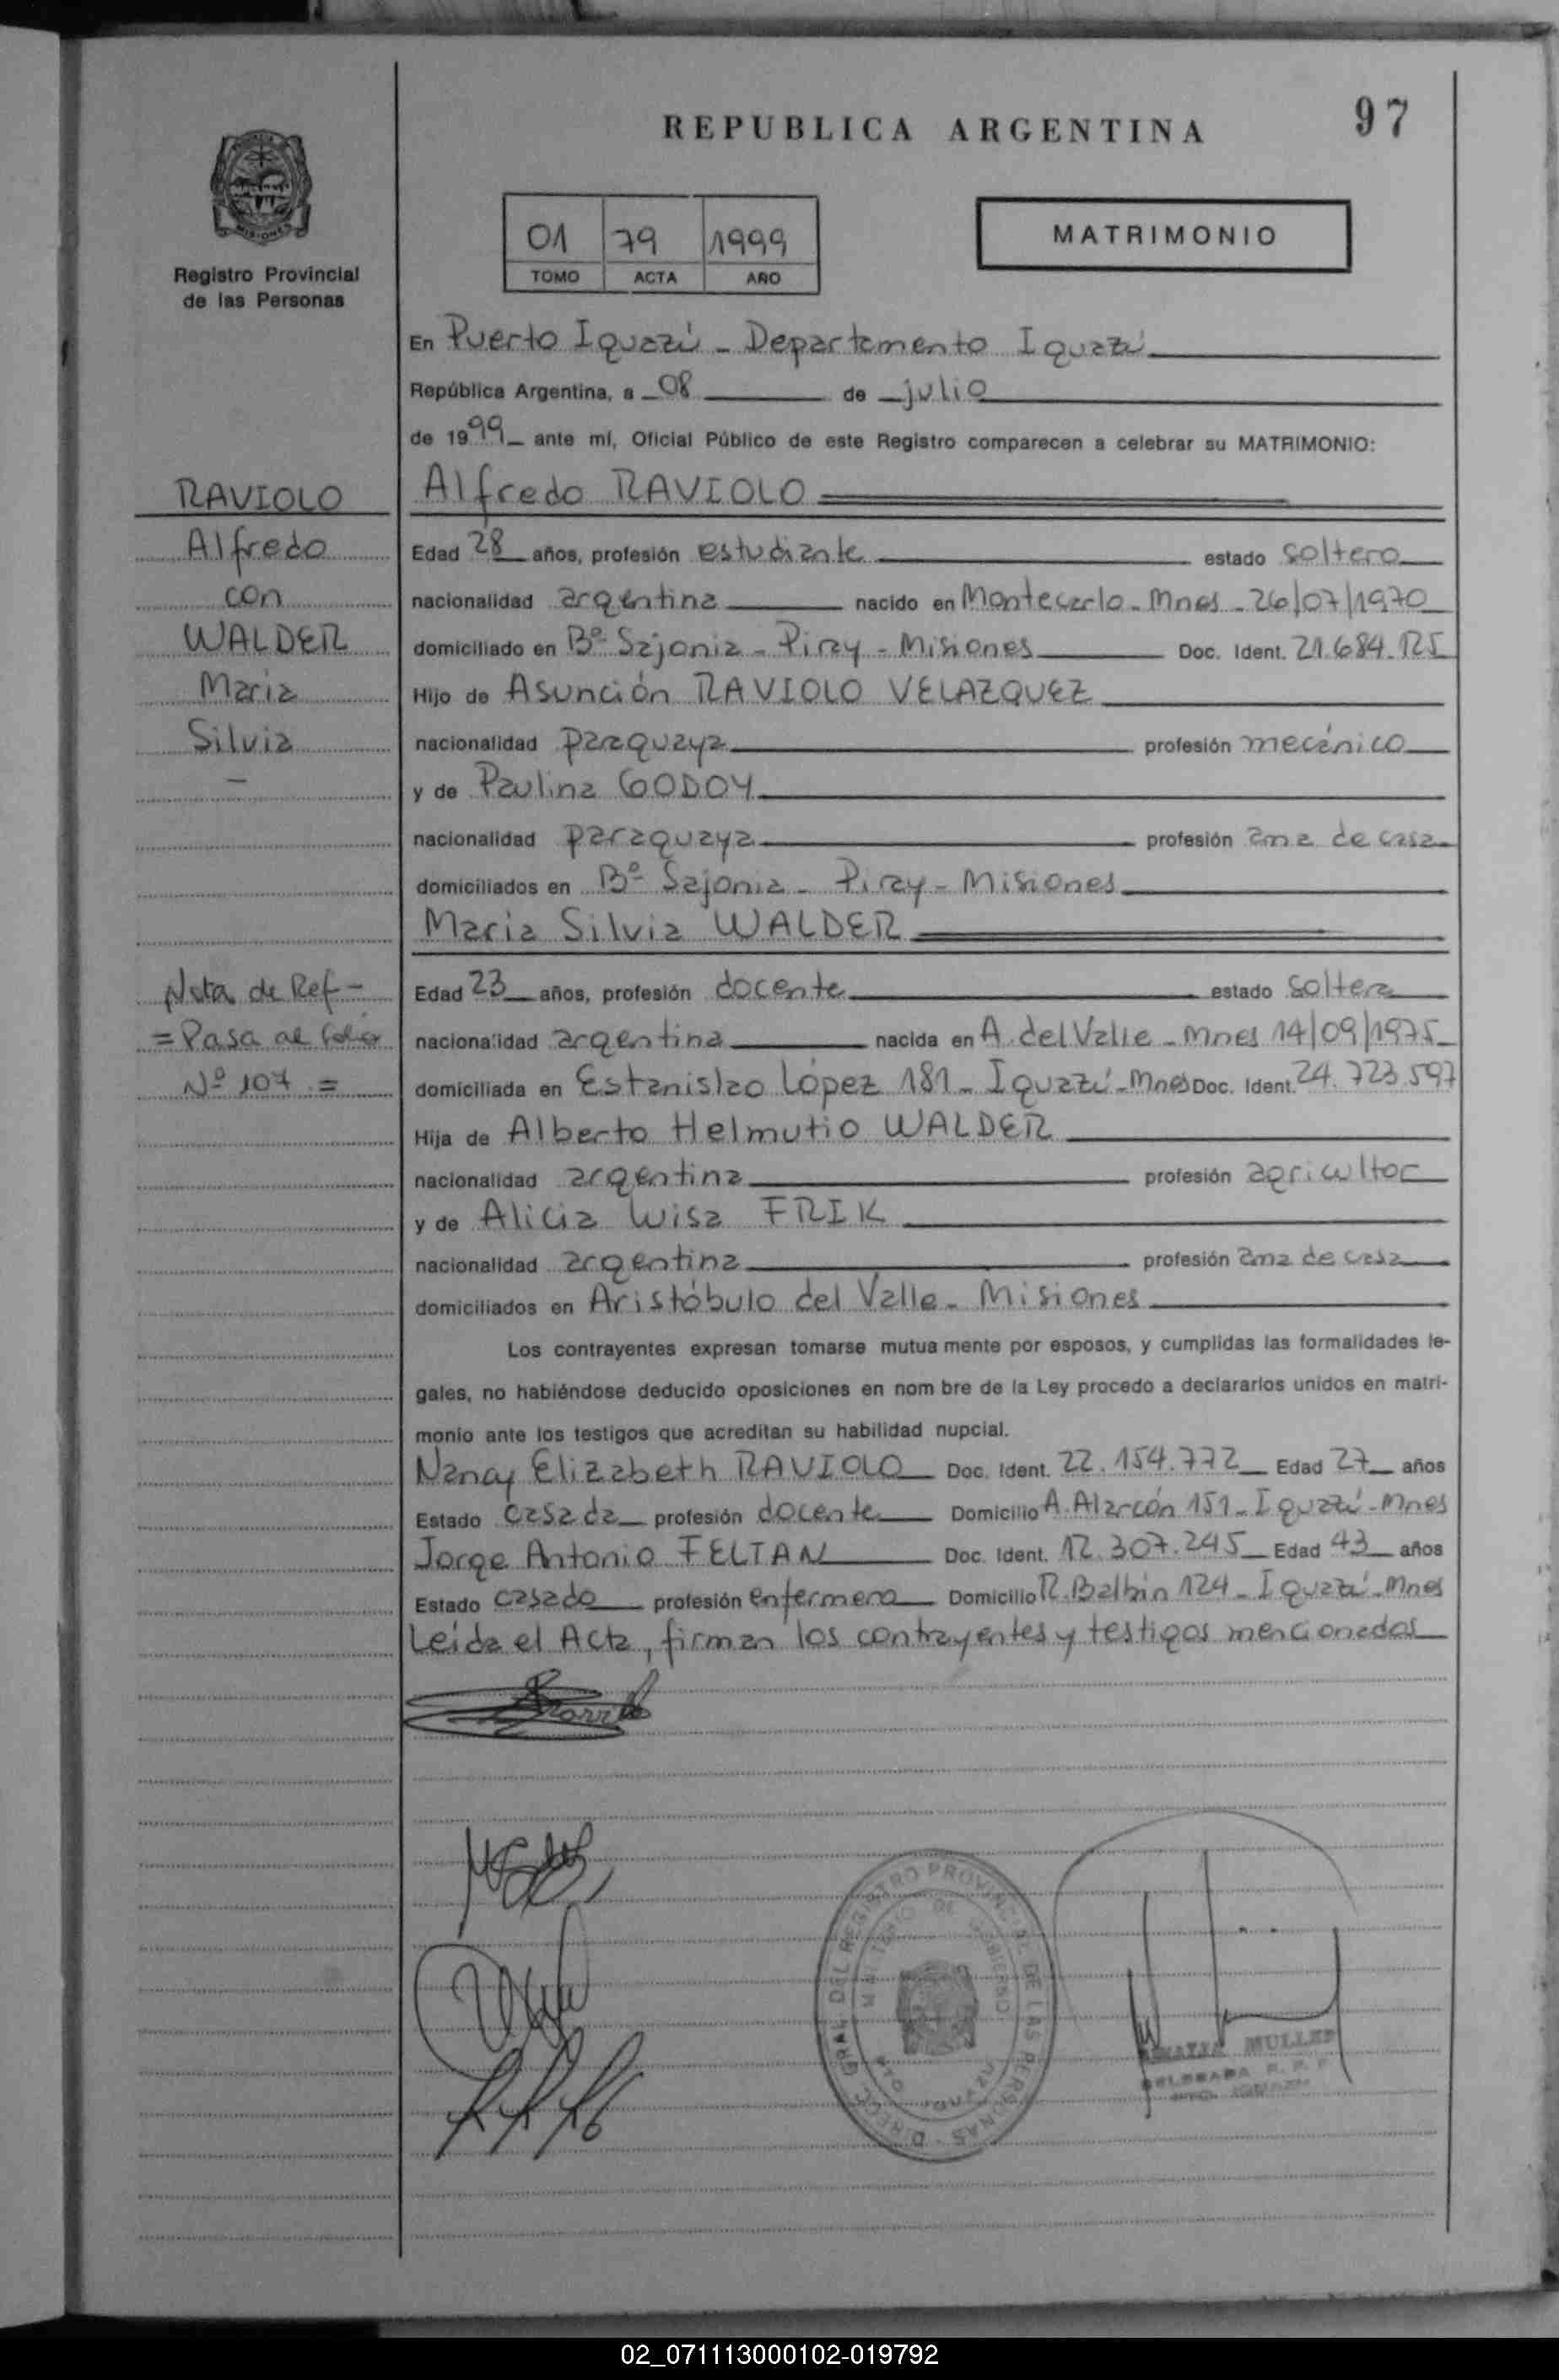 97
REPUBLICA ARGENTINA
MISIONES
Registro Provincial
de las Personas
01 79 1999
TOMO ACTA AÑO
MATRIMONIO
En Puerto Iguazú - Departamento Iguazú
República Argentina, a 08 de julio
de 1999 ante mí, Oficial Público de este Registro comparecen a celebrar su MATRIMONIO:
RAVIOLO
Alfredo
con
WALDER
Maria
Silvia
-
Nota de Ref -
= Pasa al folio
Nº 107 =
Alfredo RAVIOLO
Edad 28 años, profesión estudiante estado soltero
nacionalidad argentina nacido en Montecarlo - Mnes - 26/07/1970
domiciliado en Bº Sajonia - Piray - Misiones Doc. Ident. 21.684.125
Hijo de Asunción RAVIOLO VELAZQUEZ
nacionalidad paraguaya profesión mecánico
y de Paulina GODOY
nacionalidad paraguaya profesión ama de casa
domiciliados en Bº Sajonia - Piray - Misiones
Maria Silvia WALDER
Edad 23 años, profesión docente estado soltera
nacionalidad argentina nacida en A. del Valle - Mnes 14/09/1975
domiciliada en Estanislao López 181 - Iguazú - Mnes Doc. Ident. 24.723.597
Hija de Alberto Helmutio WALDER
nacionalidad argentina profesión agricultor
y de Alicia Wisa FRIK
nacionalidad argentina profesión ama de casa
domiciliados en Aristóbulo del Valle - Misiones
Los contrayentes expresan tomarse mutua mente por esposos, y cumplidas las formalidades le-
gales, no habiéndose deducido oposiciones en nom bre de la Ley procedo a declararlos unidos en matri-
monio ante los testigos que acreditan su habilidad nupcial.
Nancy Elizabeth RAVIOLO Doc. Ident. 22.154.772 Edad 27 años
Estado casada profesión docente Domicilio A. Alarcón 151 - Iguazú - Mnes
Jorge Antonio FELTAN Doc. Ident. 12.307.245 Edad 43 años
Estado casado profesión enfermero Domicilio R. Balbin 124 - Iguazú - Mnes
Leída el Acta, firman los contrayentes y testigos mencionados
DIRECC. GRAL. DEL REGISTRO PROVINCIAL DE LAS PERSONAS
MINISTERIO DE GOBIERNO
MULLER
DELEGADA R. P. P.
02_071113000102-019792